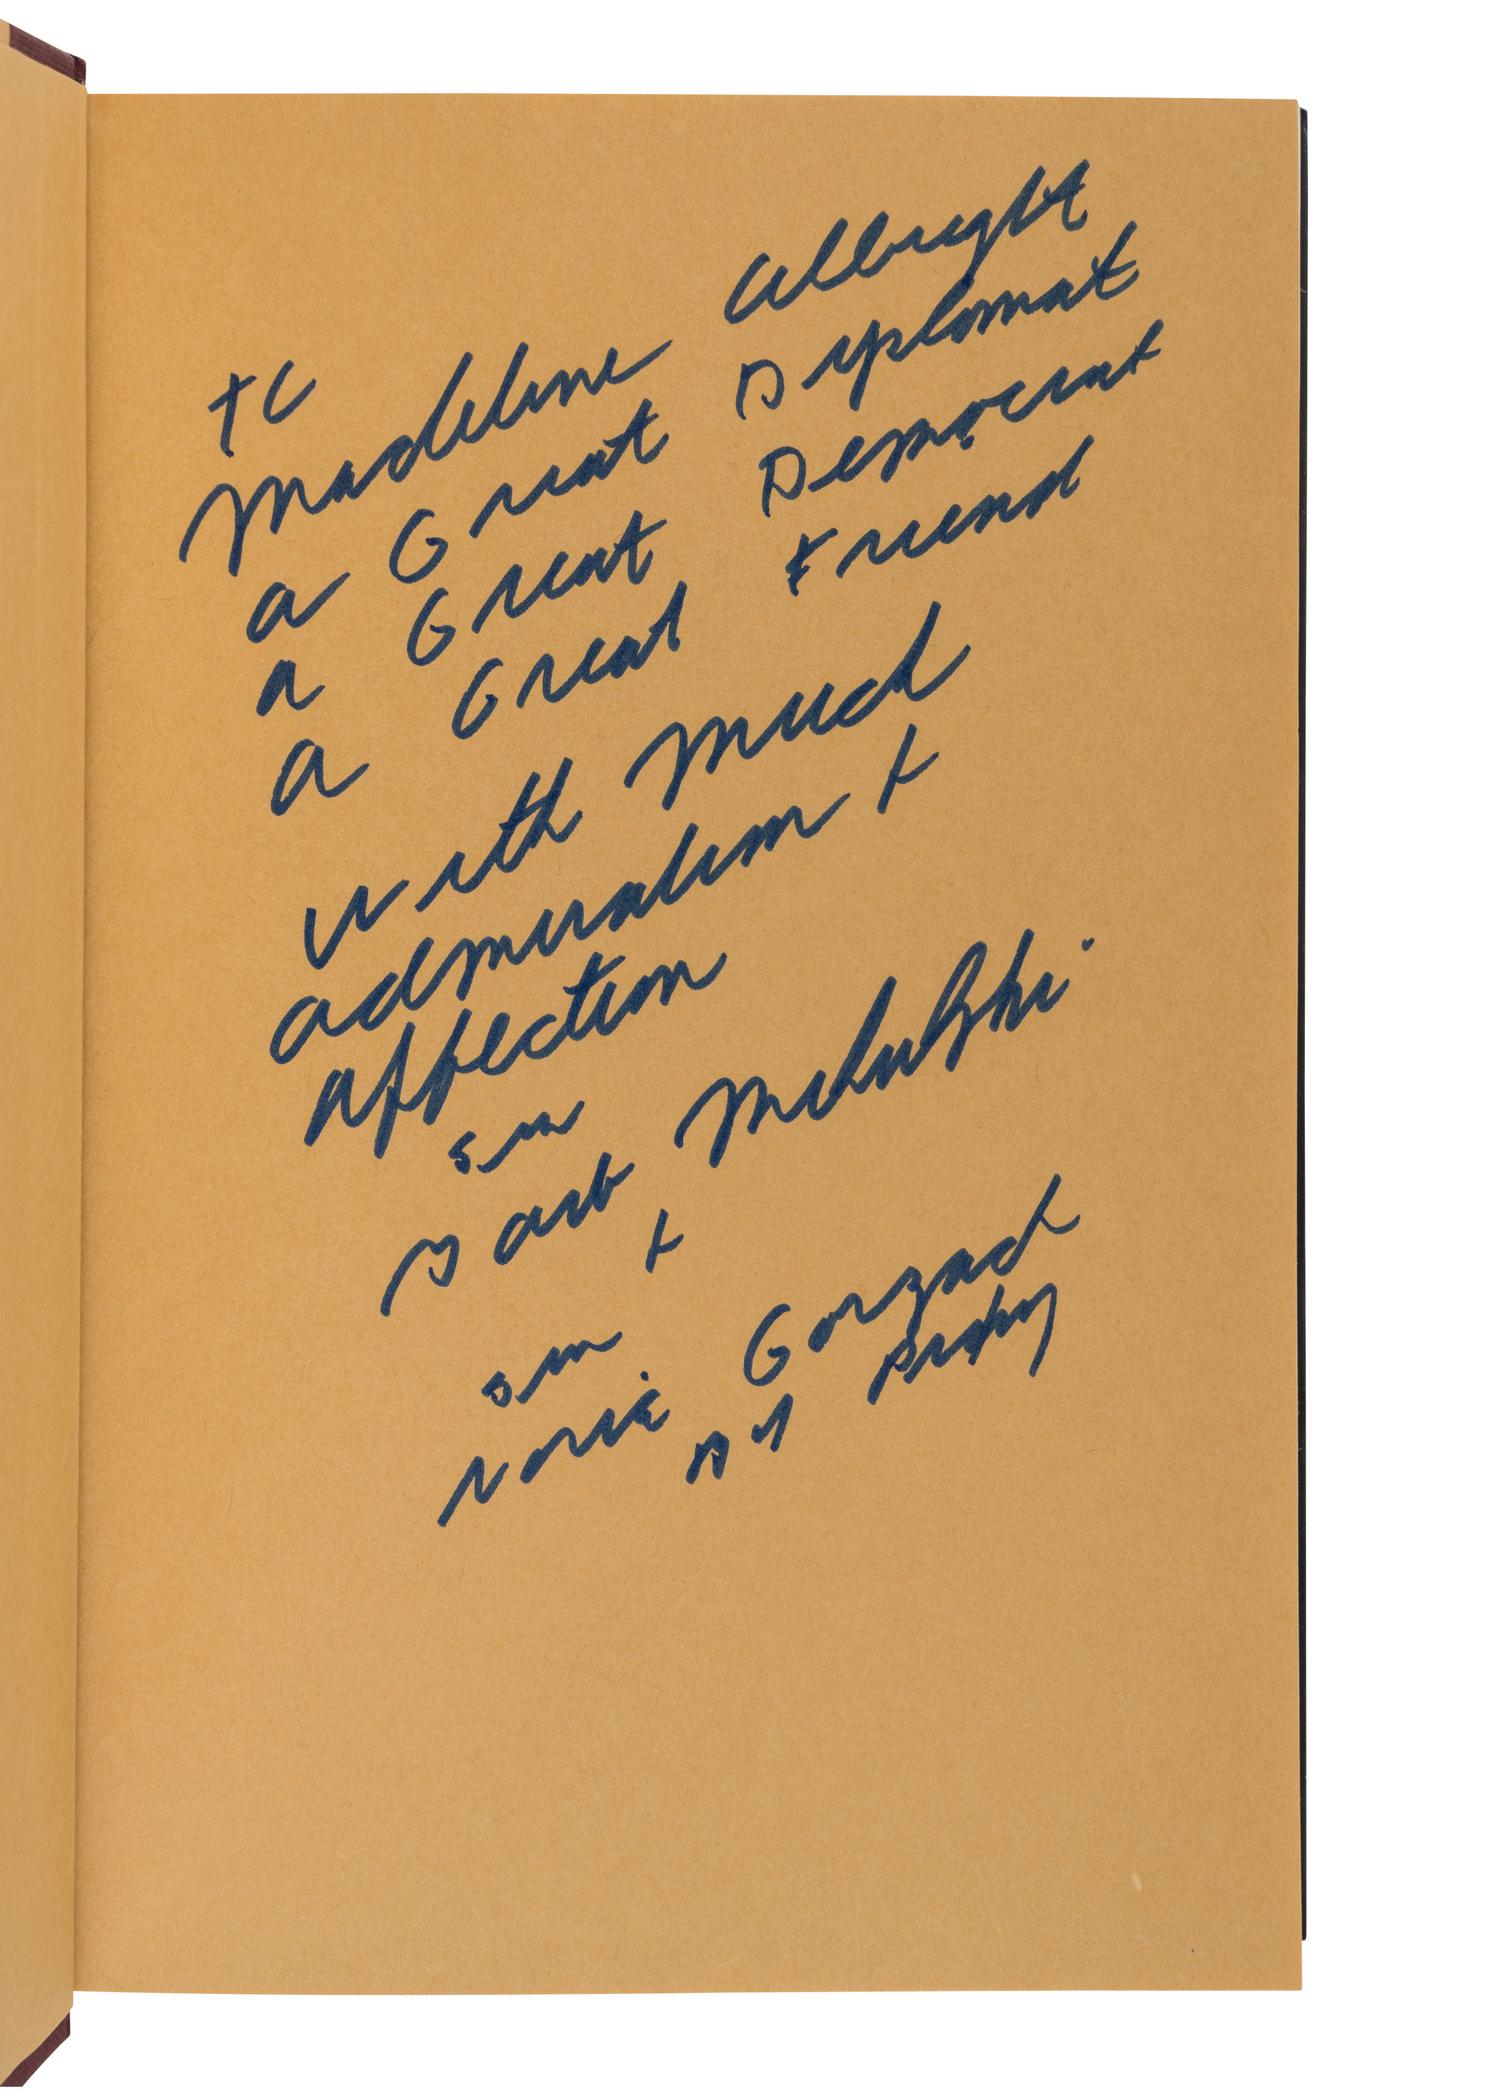 to
Madeline Albright
a Great Diplomat
a Great Democrat
a Great Friend
with much
admiration +
affection
Sen
Barb Mikulski
+
Sen
Norie Gorzack